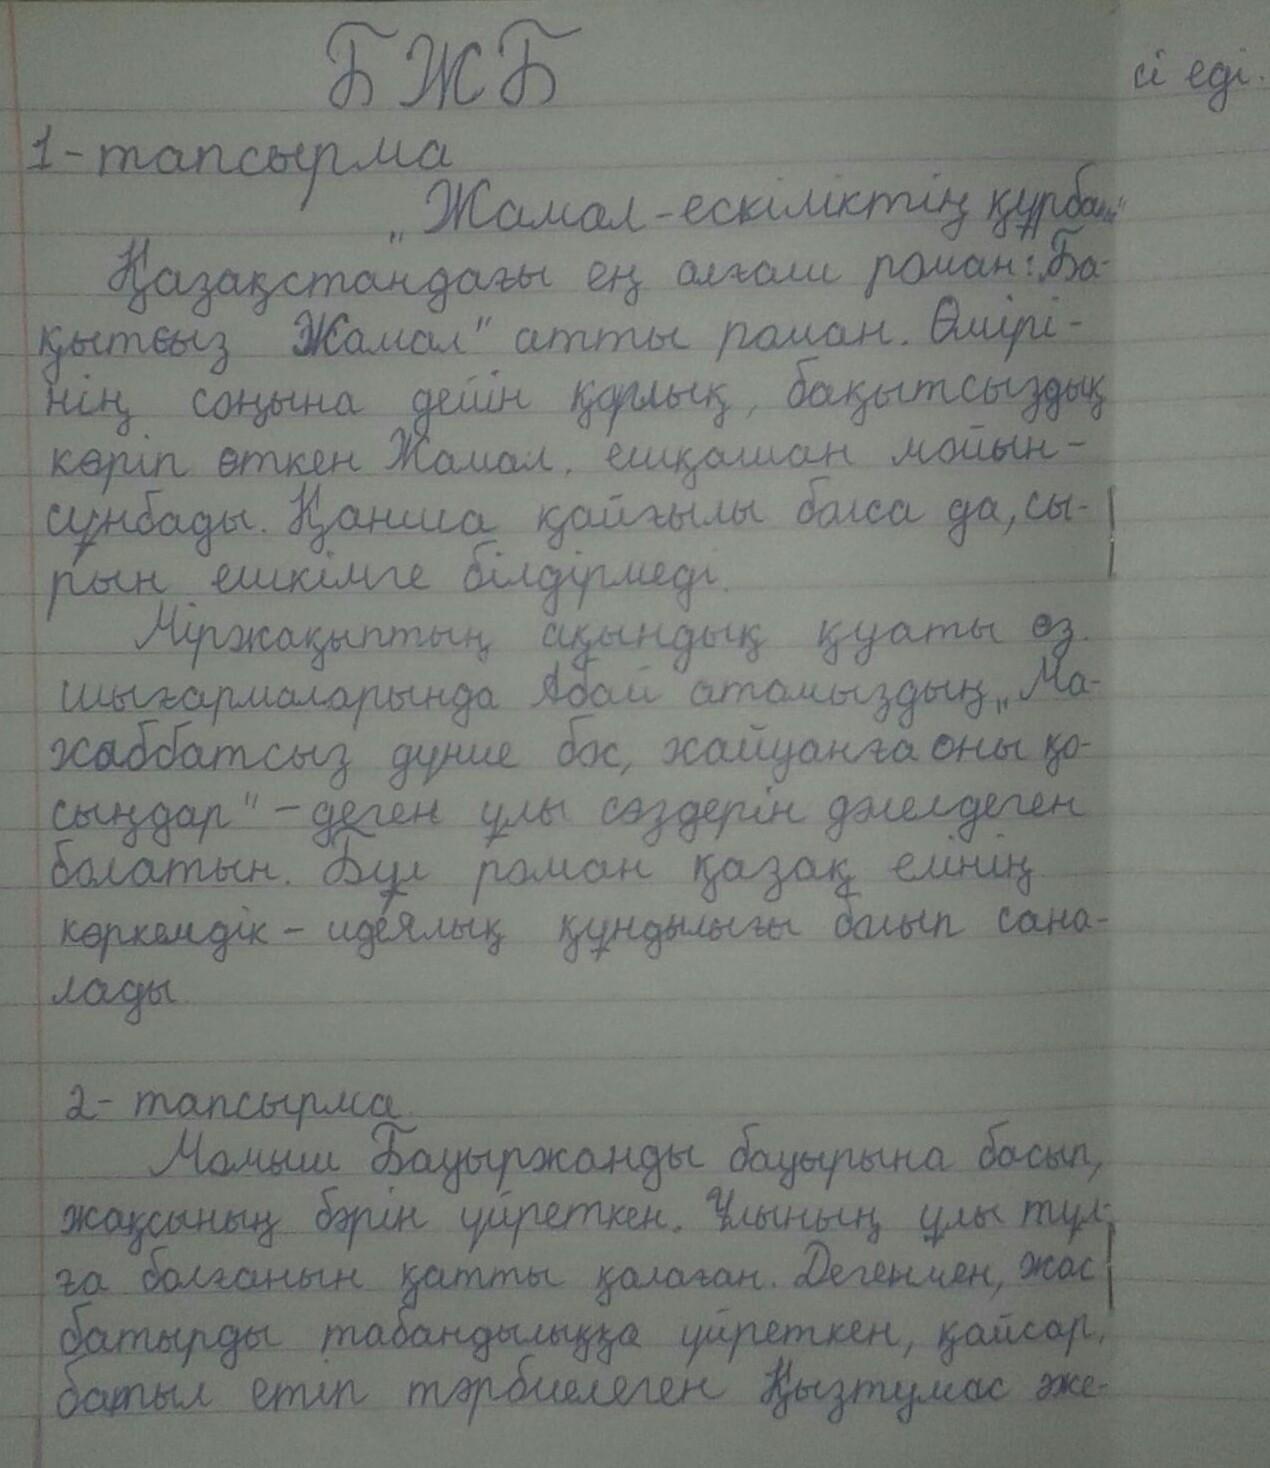 БЖБ
1-тапсырма
„Жамал-ескіліктің құрбаны"
Қазақстандағы ең алғаш роман: „Ба-
қытсыз Жамал" атты роман. Өмірі-
нің соңына дейін қорлық, бақытсыздық
көріп өткен Жамал, ешқашан мойын-
сұнбады. Қанша қайғылы болса да, сы-
рын ешкімге білдірмеді.
Міржақыптың ақындық қуаты өз
шығармаларында Абай атамыздың „Ма-
хаббатсыз дүние бос, хайуанға оны қо-
сыңдар" - деген ұлы сөздерін дәлелдеген
болатын. Бұл роман қазақ елінің
көркемдік - идеялық құндылығы болып сана-
лады
2- тапсырма.
Момыш Бауыржанды бауырына басып,
жақсының бәрін үйреткен. Ұлының ұлы тұл-
ға болғанын қатты қалаған. Дегенмен, жас
батырды табандылыққа үйреткен, қайсар,
батыл етіп тәрбиелеген Қызтумас әже-
сі еді.